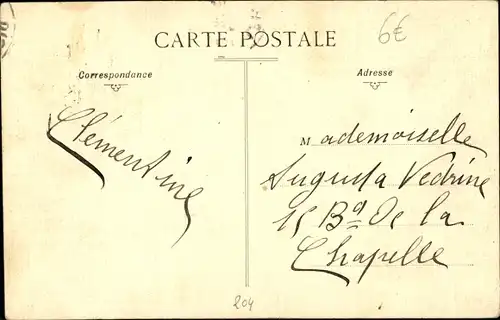 6€
CARTE POSTALE
Correspondance
Adresse
Clémentine
Mademoiselle
Augusta Vedrine
15 Bd De la
Chapelle
204